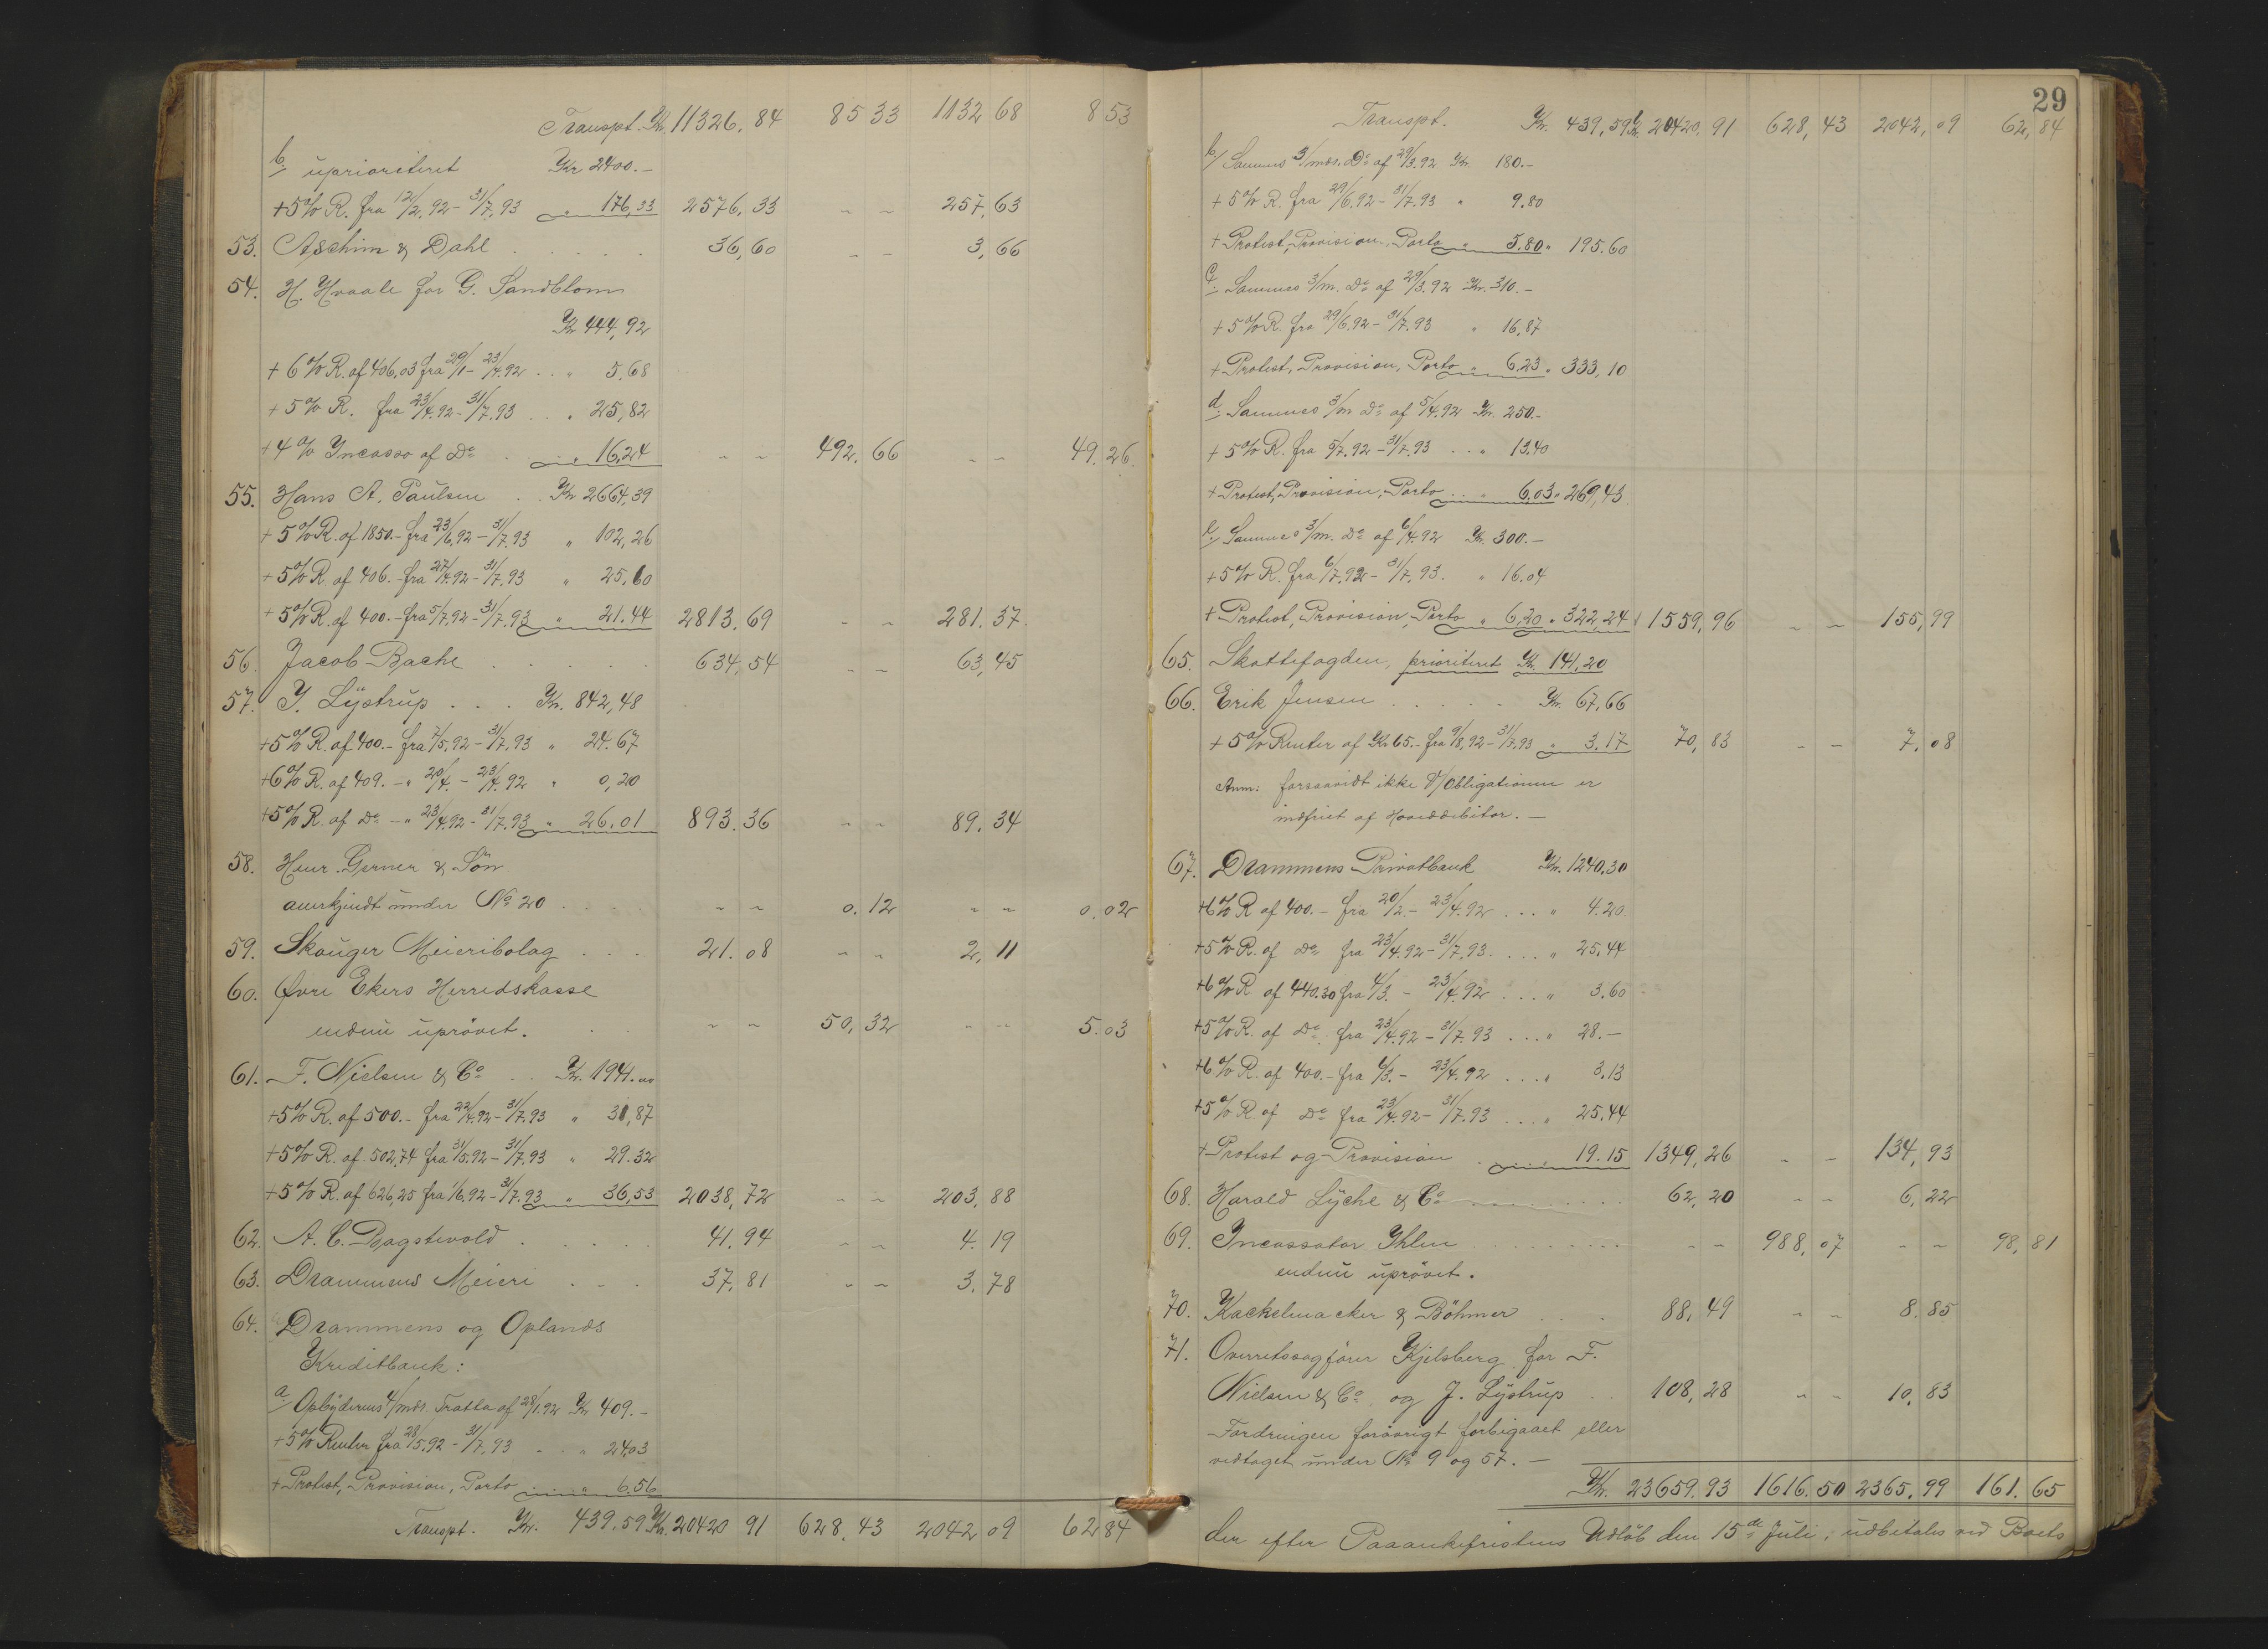 Transpt. Kr. 11326.84 85 33 1132 68 8 53
b/ uprioriteret Kr 2400.-
+5% R. fra 12/2.92-31/7.93 " 176,33 2576,33 - - 257,63
53. Aschim & Dahl . . . . . 36,60 - - 3,66
54. H. Hvaale for G. Sandblom
Kr 444,92
+ 6% R. af 406,03 fra 29/1-23/4.92 . . " 5,68
+ 5% R. fra 23/4.92-31/7.93 . . " 25,82
+4% Incasso af Do . . " 16,24 - - 492.66 - - 49.26.
55. Hans A. Paulsen . . Kr 2664,39
+ 5% R. af 1850.- fra 23/6.92-31/7.93 " 102,26
+5% R. af 406.- fra 27/4.92-31/7.93 " 25,60
+ 5% R. af 400.- fra 5/7.92-31/7.93 " 21.44 2813.69 - - 281.37.
56. Jacob Bache . . . . . 634,54 - - 63,45
57. J. Lÿstrup . . . Kr. 842,48
+5% R. af 400.- fra 7/5.92-31/7.93 " 24.67
+6% R. af 409. - " 20/4. - 23/4.92 " 0,20
+5% R. af Do - " 23/4.92-31/7.93 " 26.01 893.36 - - 89.34
58. Henr. Gerner & Sön
anerkjendt under No 20 . . . . - - 0.12 - - 0.02
59. Skauger Meieribolag . . . 21.08 - - 2,11
60. Øvre Ekers Herredskasse
endnu uprövet. . . - - 50,32 - - 5.03
61. F. Nielsen & Co . . Kr. 1941.00
+5% R. af 500.- fra 22/4.92-31/7.93 " 31,87
+5% R. af 502,74 fra 31/5.92-31/7.93 " 29.32
+5% R. af 626,25 fra 1/6.92-31/7.93 " 36,53 2038,72 - - 203,88
62. A. C. Bagstevold . . . . . 41.94 - - 4.19
63. Drammens Meieri . . . 37,81 - - 3.78
64. Drammens og Oplands
Kreditbank:
a/ Opbÿderens 4/mdr. Tratta af 28/1.92 Kr 409.-
+5% Renter fra 28/5.92-31/7.93 - . " 24,03
+Protest, Provision, Porto . . . . " 6.56
Transpt. Kr. 439.59 Kr. 20420 91 628.43 2042 09 62 84
29
Transpt. Kr. 439,59 Kr. 20420,91 628,43 2042,09 62,84
b/ Sammes 3/mdr. Do af 29/3.92 Kr. 180.-
+ 5% R. fra 29/6.92-31/7.93 " 9.80
+ Protest, Provision, Porto " 5.80 " 195.60
c/ Sammes 3/m. Do af 29/3.92 Kr. 310.-
+ 5% R. fra 29/6.92-31/7.93 " 16,87
+Protest, Provision, Porto " 6,23 " 333,10
d/ Sammes 3/m Do af 5/4.92 Kr. 250.-
+ 5% R. fra 5/7.92-31/7.93 . . " 13.40
+ Protest, Provision, Porto . . " 6,03 " 269,43
e/ Sammes 3/m. Do af 6/4.92 Kr. 300.-
+5% R. fra 6/7.92-31/7.93. " 16.04
+ Protest, Provision, Porto " 6,20 " 322,24 1559,96 - - 155,99
65. Skattefogden, prioriteret Kr. 141,20
66. Erik Jensen . . . . . Kr. 67,66
+ 5% Renter af Kr 65.- fra 9/8.92-31/7.93 " 3.17 70,83 - - 7.08
Anm: forsaavidt ikke Obligationen er
indfriet af Hoveddebitor. -
67. Drammens Privatbank Kr. 1240.30
+6% R af 400.- fra 20/2.- 23/4.92 . . . " 4.20
+5% R. af Do fra 23/4.92-31/7.93. . . . " 25,44
+6% R af 440.30 fra 4/3. - 23/4.92 . . . " 3.60
+5% R. af Do. fra 23/4.92-31/7.93 . . . " 28.-
+6% R. af 400.- fra 6/3.- 23/4.92 . . . " 3.13
+5% R. af Do fra 23/4.92-31/7.93 . . . " 25.44
+Protest og Provision . . . . . 19.15 1349,26 - - 134,93
68. Harald Lÿche & Co . . . . . . 62,20 - - 6,22
69. Incassator Ihlen . . . . . . . . - - 988,07 - - 98,81
endnu uprövet.
70. Kackelmacker & Böhmer . . . 88,49 - - 8.85
71. Overretssagförer Kjelsberg for F.
Nielsen & Co og J. Lÿstrup . . 108,28 - - 10,83
Fordringen forövrigt forbigaaet eller
vedtaget under No 9 og 57. -
Kr. 23659.93 1616.50 2365.99 161.65
der efter Paaankefristens Udlöb den 15de Juli, udbetales ved Boets